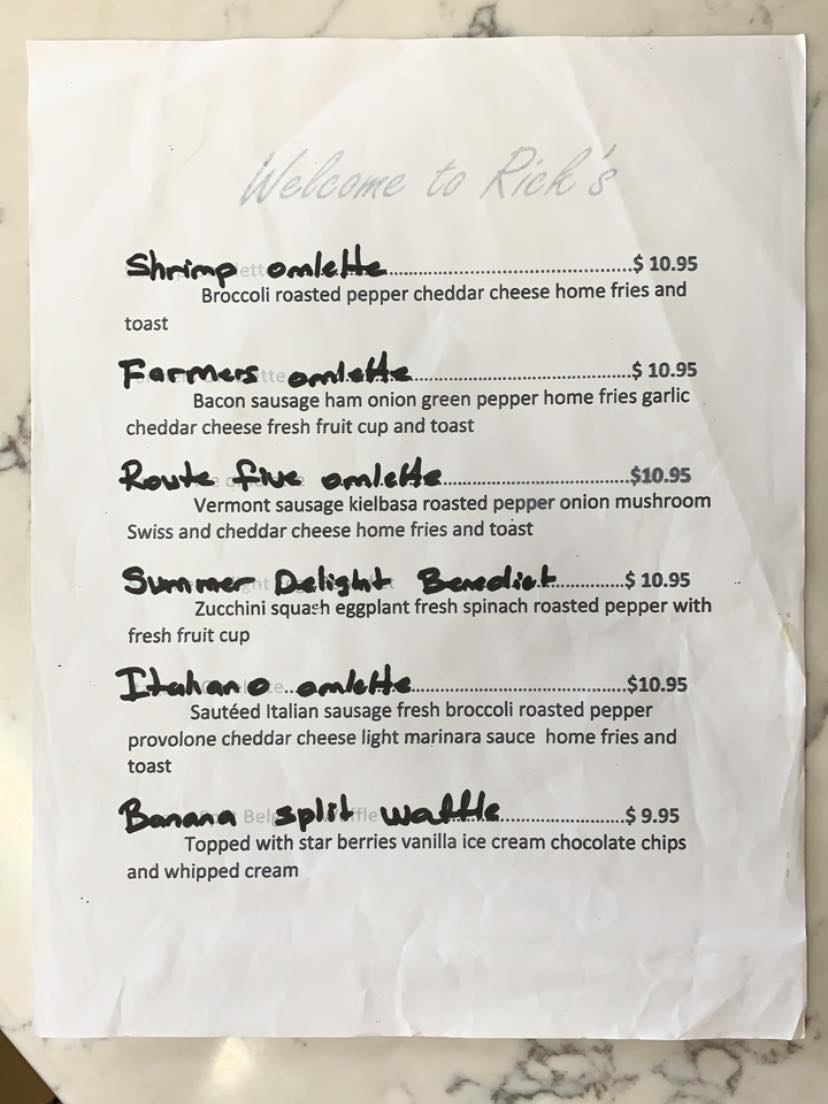 Welcome to Rick's
Shrimp omlette..............................................$ 10.95
Broccoli roasted pepper cheddar cheese home fries and
toast
Farmers omlette.........................................$ 10.95
Bacon sausage ham onion green pepper home fries garlic
cheddar cheese fresh fruit cup and toast
Route five omlette...................................$10.95
Vermont sausage kielbasa roasted pepper onion mushroom
Swiss and cheddar cheese home fries and toast
Summer Delight Benedict.............$ 10.95
Zucchini squash eggplant fresh spinach roasted pepper with
fresh fruit cup
Italiano omlette........................................$10.95
Sautéed Italian sausage fresh broccoli roasted pepper
provolone cheddar cheese light marinara sauce home fries and
toast
Banana split waffle.......................$ 9.95
Topped with star berries vanilla ice cream chocolate chips
and whipped cream